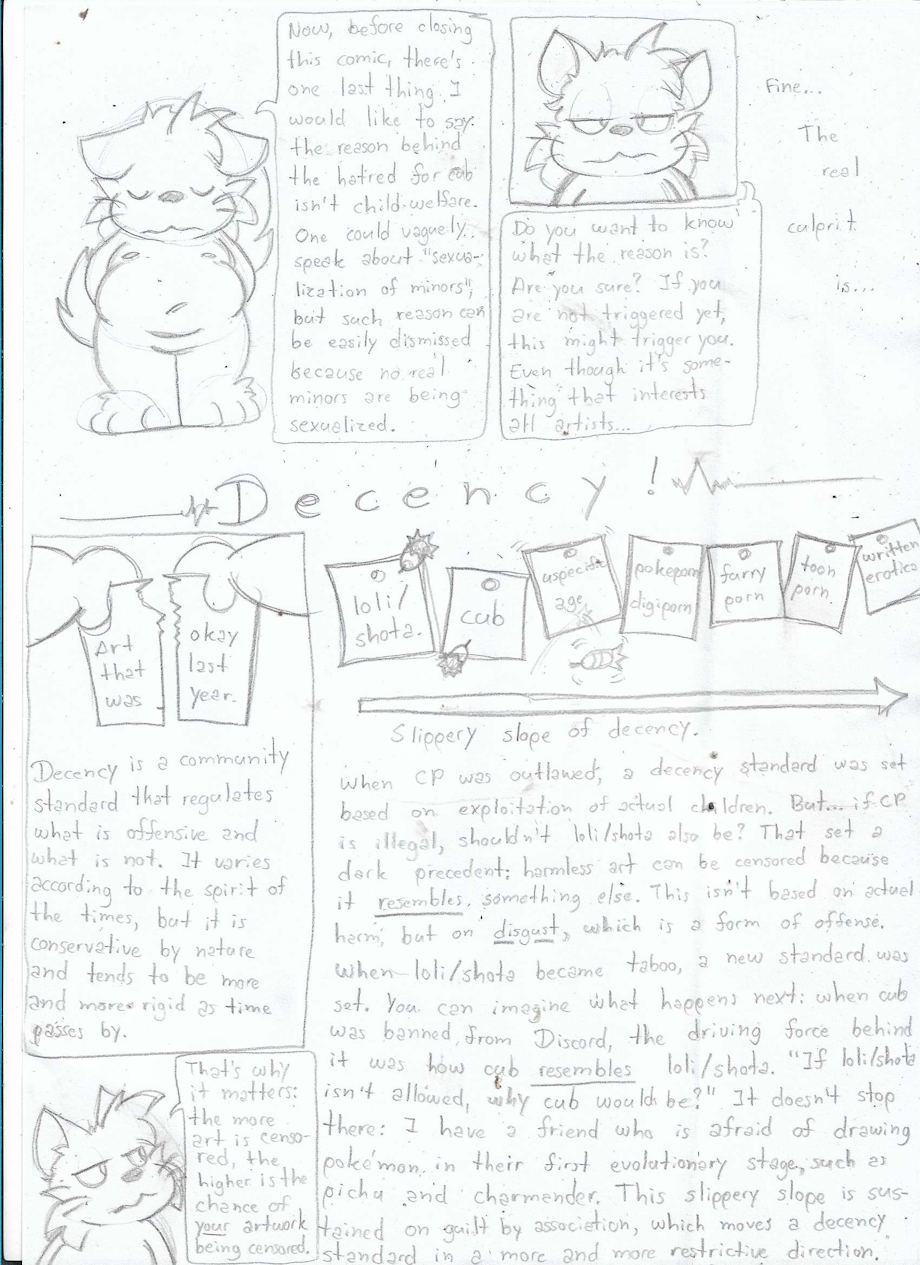 Now, before closing
this comic, there's
one last thing I
would like to say:
the reason behind
the hatred for cub
isn't child welfare.
One could vaguely
speak about "sexua-
lization of minors",
but such reason can
be easily dismissed
because no real
minors are being
sexualized.
Do you want to know
what the reason is?
Are you sure? If you
are not triggered yet,
this might trigger you.
Even though it's some-
thing that interests
all artists...
Fine...
The
real
culprit
is...
Decency!
Art
that
was
okay
last
year.
Decency is a community
standard that regulates
what is offensive and
what is not. It varies
according to the spirit of
the times, but it is
conservative by nature
and tends to be more
and more rigid as time
passes by.
loli/
shota.
cub
uspecific
age
pokeporn
digiporn
furry
porn
toon
porn.
written
erotica
Slippery slope of decency.
When CP was outlawed, a decency standard was set
based on exploitation of actual children. But... if CP
is illegal, shouldn't loli/shota also be? That set a
dark precedent: harmless art can be censored because
it resembles something else. This isn't based on actual
harm, but on disgust, which is a form of offense.
When loli/shota became taboo, a new standard was
set. You can imagine what happens next: when cub
was banned from Discord, the driving force behind
it was how cub resembles loli/shota. "If loli/shota
isn't allowed, why cub would be?" It doesn't stop
there: I have a friend who is afraid of drawing
pokémon in their first evolutionary stage, such as
pichu and charmander. This slippery slope is sus-
tained on guilt by association, which moves a decency
standard in a more and more restrictive direction.
That's why
it matters:
the more
art is censo-
red, the
higher is the
chance of
your artwork
being censored.